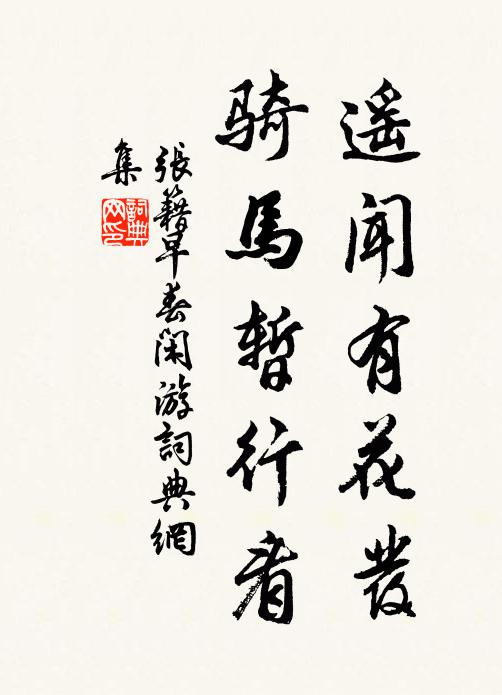 遥聞有花發
騎馬暫行看
張籍早春閑游詞典網
集
詞典
网印